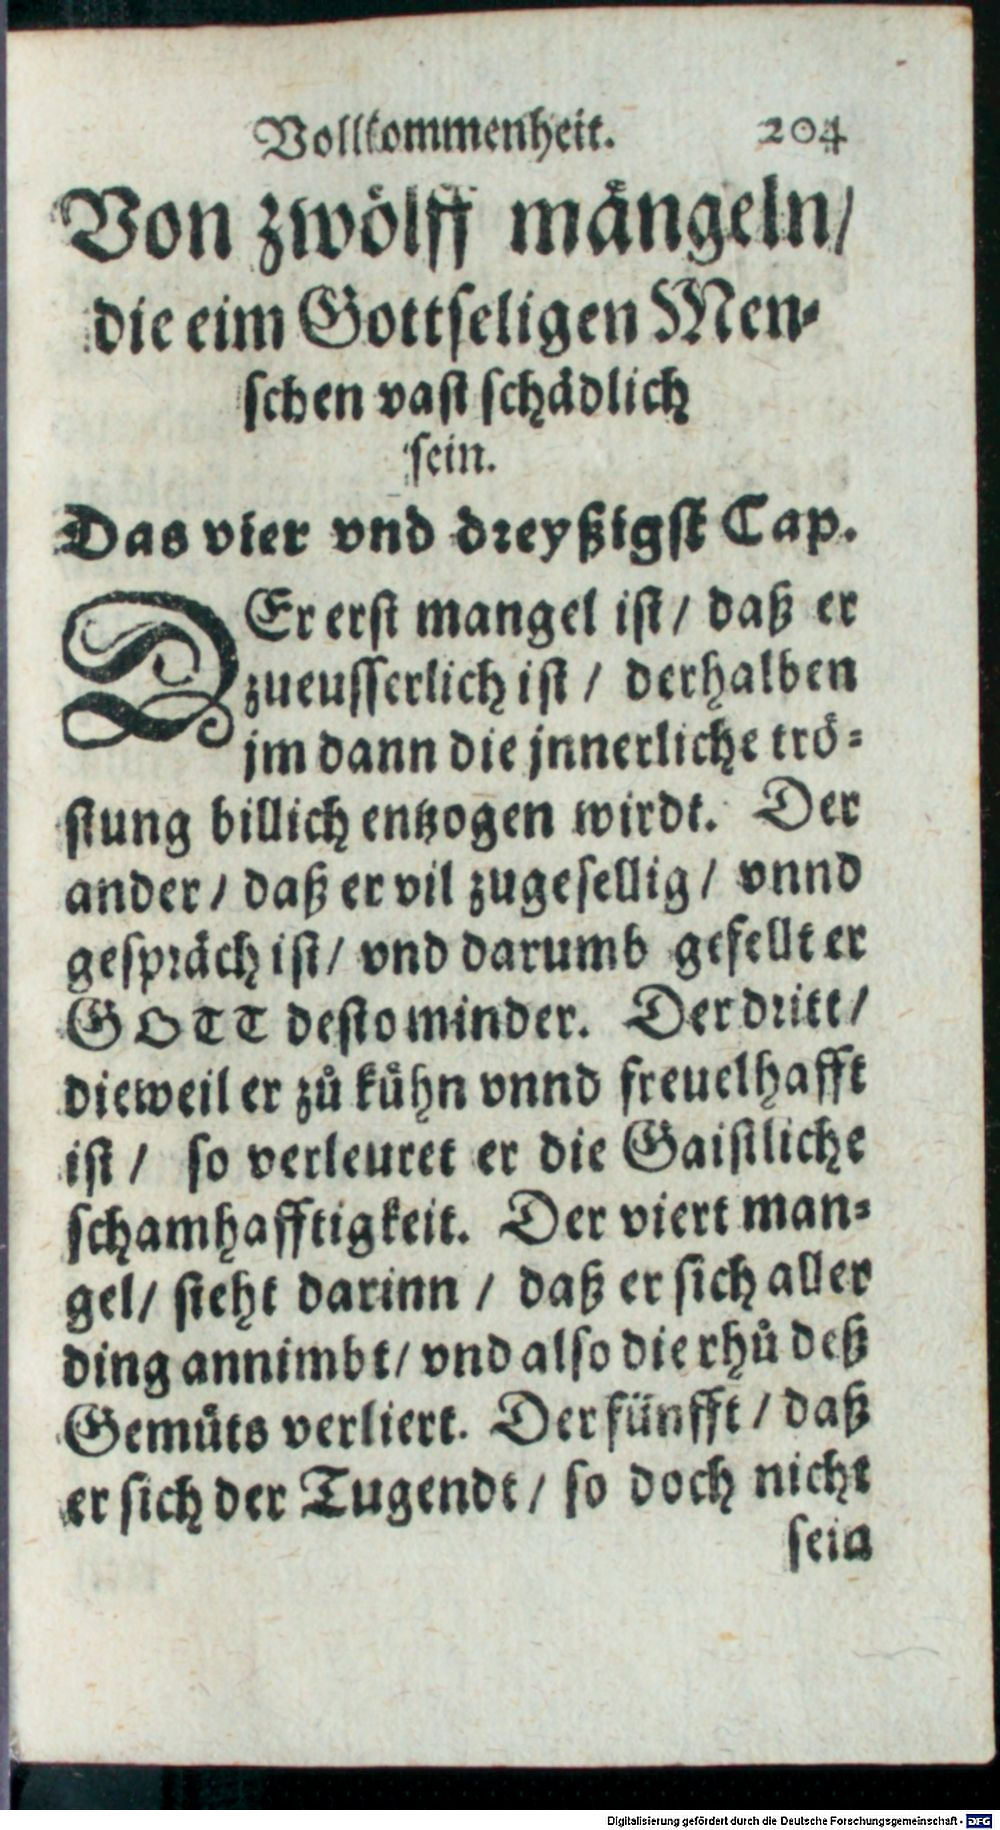 Vollkommenheit. 204
Von zwölff mängeln/
die eim Gottseligen Men-
schen vast schädlich
sein.
Das vier vnd dreyßigst Cap.
DEr erst mangel ist / daß er
zueusserlich ist / derhalben
jm dann die jnnerliche trö-
stung billich entzogen wirdt. Der
ander / daß er vil zugesellig / vnnd
gespräch ist / vnd darumb gefellt er
GOTT desto minder. Der dritt /
dieweil er zů kühn vnnd freuelhafft
ist / so verleuret er die Gaistliche
schamhafftigkeit. Der viert man-
gel / steht darinn / daß er sich aller
ding annimbt / vnd also die rhů deß
Gemüts verliert. Der fünfft / daß
er sich der Tugendt / so doch nicht
sein
Digitalisierung gefördert durch die Deutsche Forschungsgemeinschaft - DFG